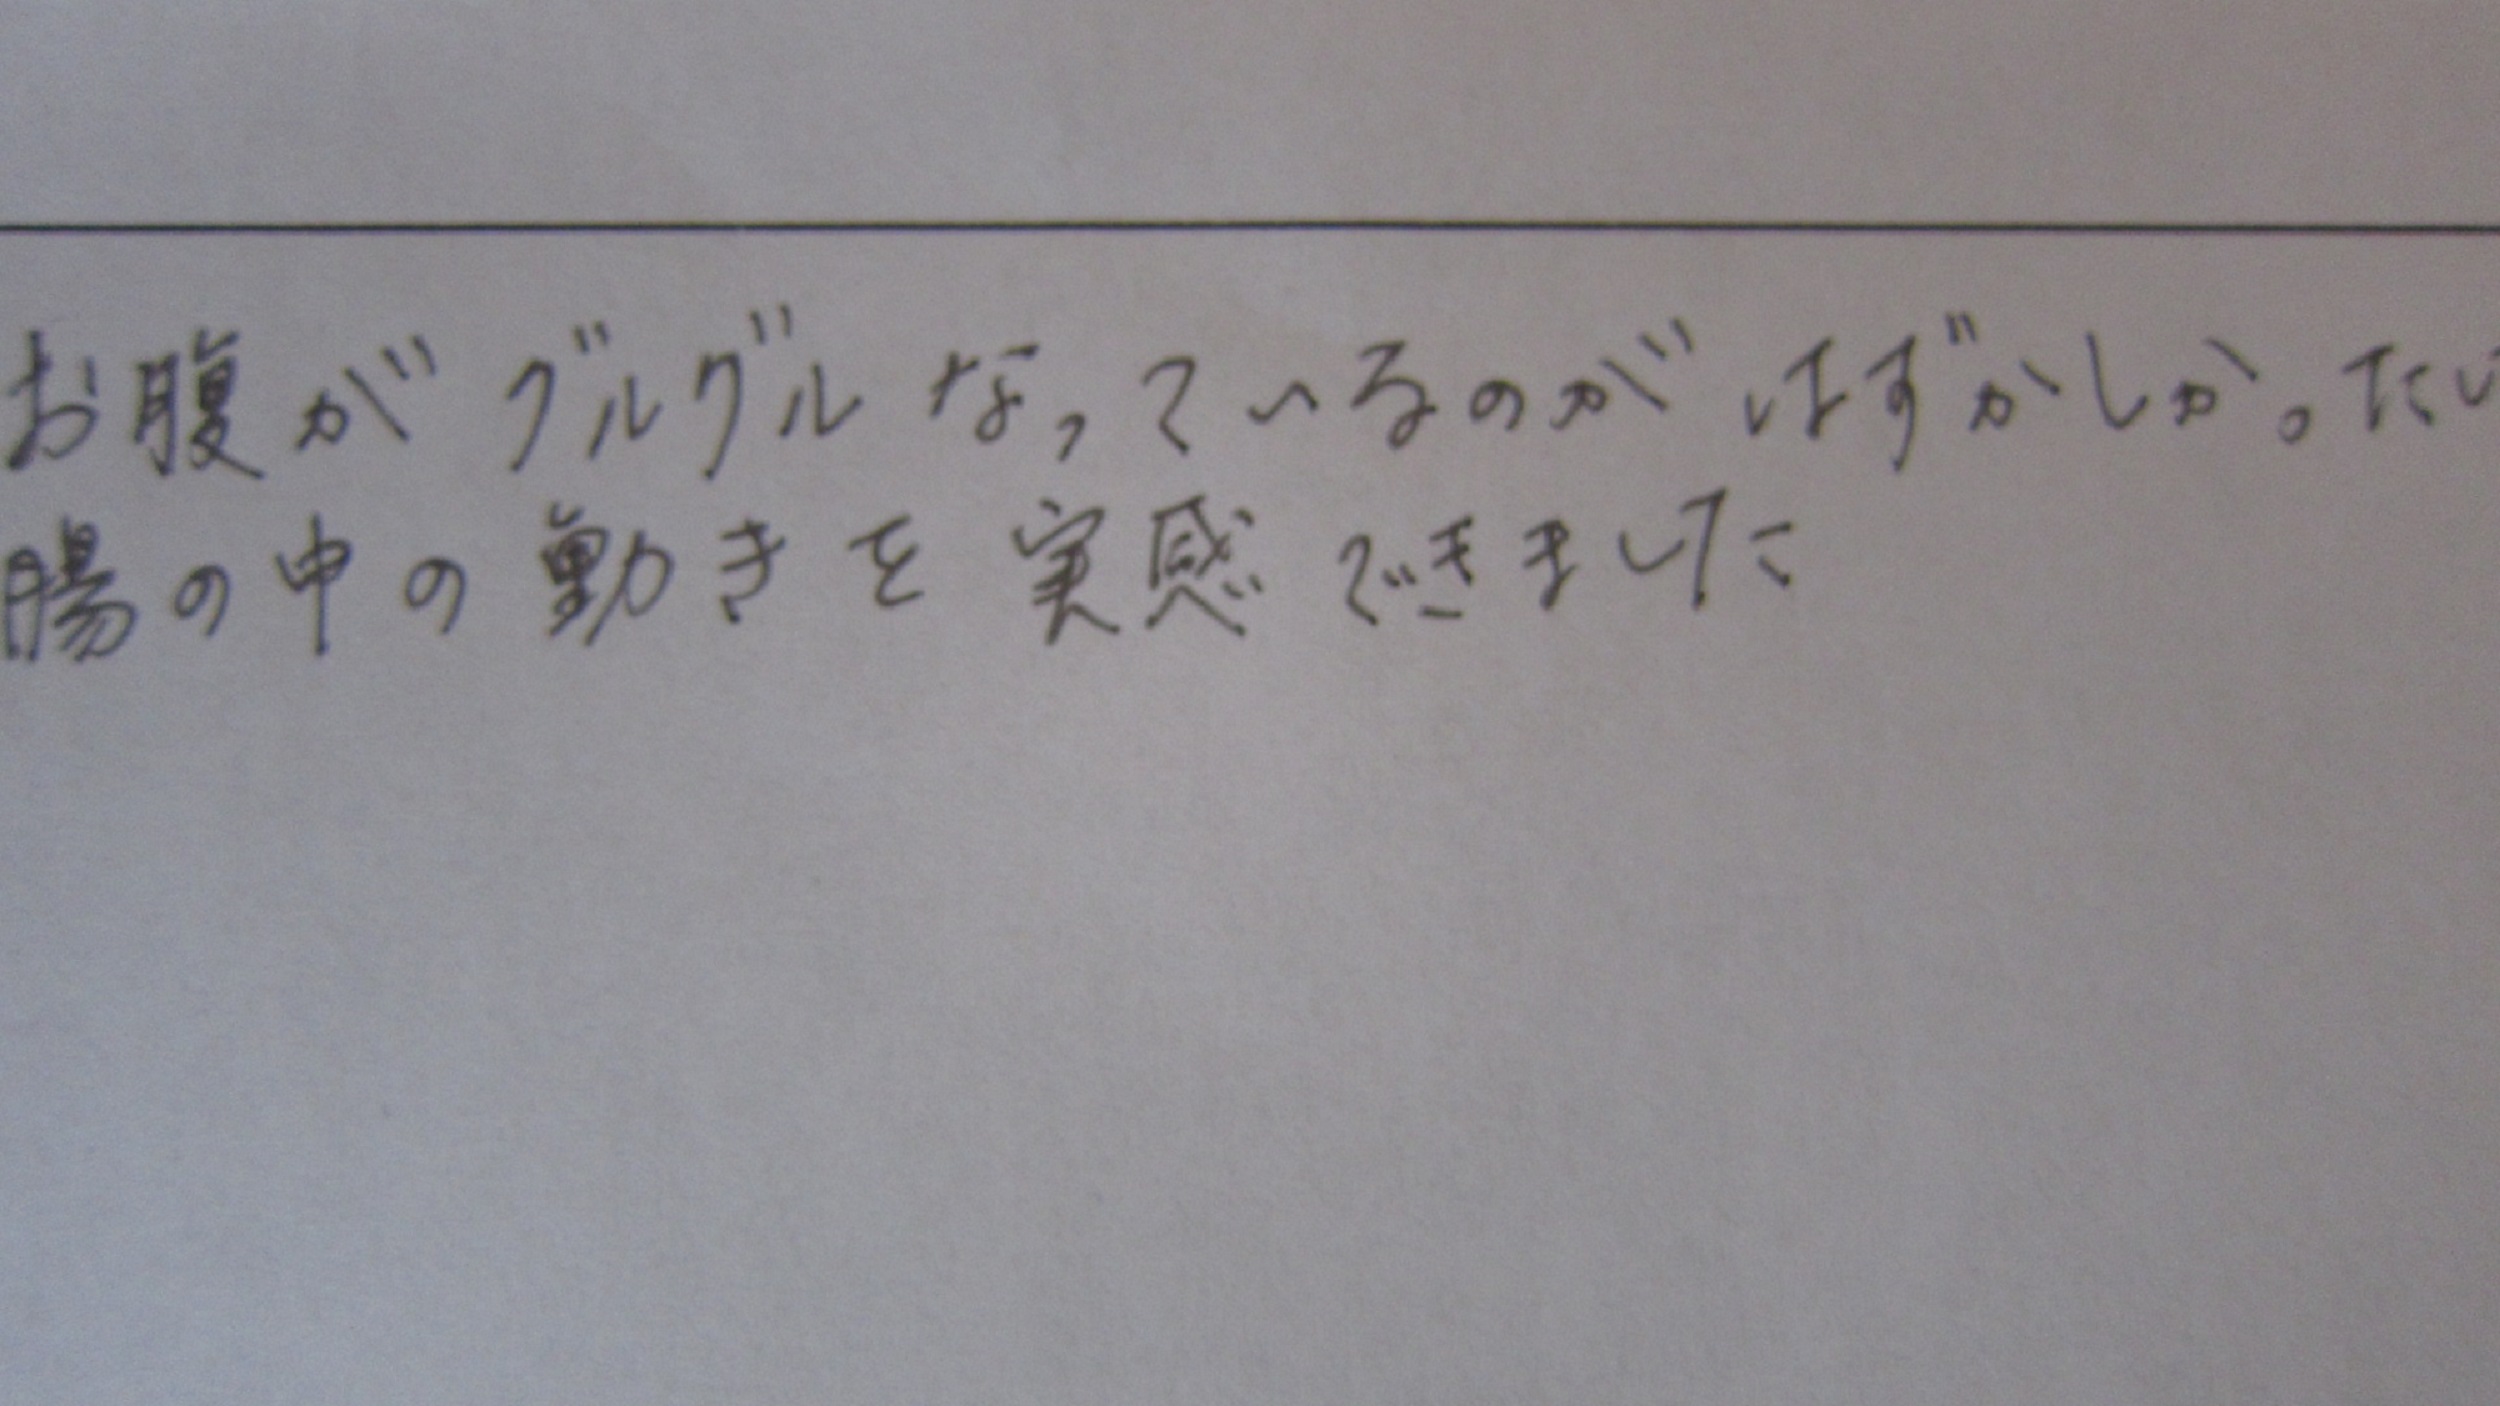 お腹がグルグルなっているのがはずかしかった
腸の中の動きを実感できました